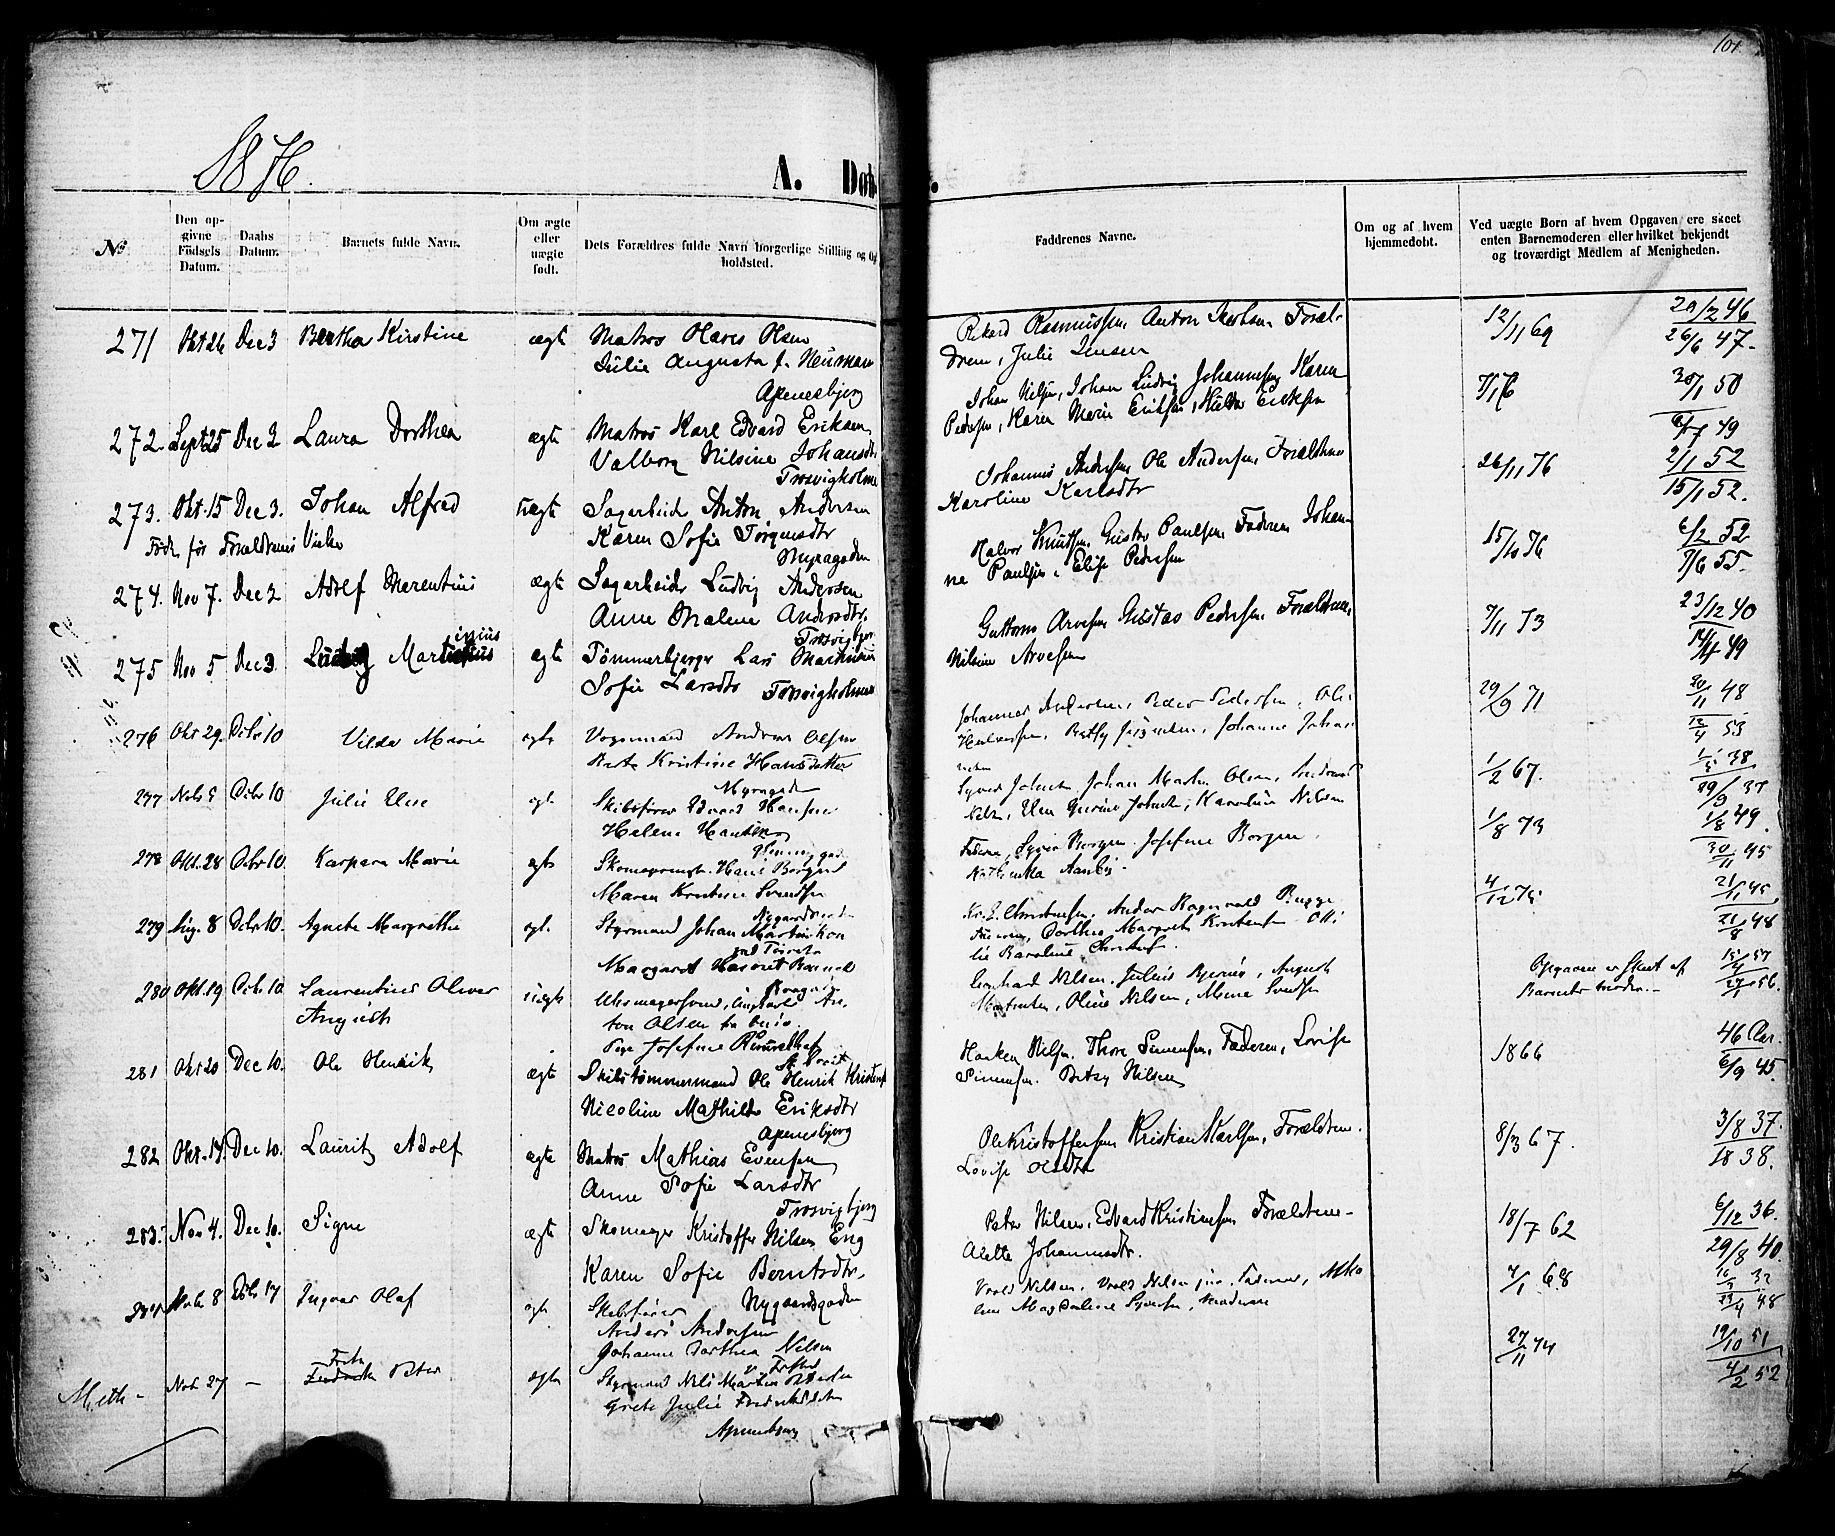 101
1876.
A. Døb
№
Den op-
givne
Födsels
Datum.
Daabs
Datum.
Barnets fulde Navn.
Om ægte
eller
uægte
født.
Dets Forældres fulde Navn borgerlige Stilling og Op
holdsted.
Faddrenes Navne.
Om og af hvem
hjemmedøbt.
Ved uægte Børn af hvem Opgaven ere skeet
enten Barnemoderen eller hvilket bekjendt
og troværdigt Medlem af Menigheden.
271 Okt 26 Dec 3 Bertha Kirstine ægte Matros Olaves Olsen
Julie Augusta f. Neuman
Apenesbjerg
Rikard Rasmussen, Anton Foræl-
drene, Julie Jensen
12/11 69
20/2 46
26/6 47.
272. Sept 25 Dec 2 Laura Dorthea ægte Matros Karl Edvard Eriksen
Valborg Nilsine Johansdtr
Trosvigholmen
Johan Nilsen, Johan Ludvig Johannesen, Karen
Pedersen, Karen Marie Eriksen, Hilda Eriksen
7/1 76
30/1 50
49
273. Okt. 15 Dec 3. Johan Alfred Uægte Sagarbeider Anton Andersen
Karen Sofie Jörgensdtr
Nyragaden
Födt før Forældrenes Vielse
Johannes Andersen, Ole Andersen, Forældrene
Karoline Karlsdtr
26/11 76
2/1 52
15/1 52.
274. Nov 7. Dec 2 Adolf Marentius ægte Sagarbeider Ludvig Andersen
Anne Malene Andersdtr.
Trosvigbjer
Halvor Knudsen, Gustav Paulsen, Faderen, Johan-
ne Paulsen, Elise Pedersen
15/10 76
6/2 52
7/6 55.
275 Nov 5 Dec 3 Ludvig Martinius ægte Tömmerbjerger Lars Martinius
Sofie Larsdtr Trosvigholmen
Guttorm Arvesen, Gustav Pedersen, Forældrene,
Nilsine Arvesen
7/11 73
23/12 40
49
276 Okt 29. Dcbr 10 Vilda Marie ægte Vognmand Andreas Olsen
Berte Kristine Hansdatter
Myragaden
Johannes Andersen, Peder Pedersen, Ole
Halvorsen, Betsy Jörgensen, Johanne Johan
29/9 71
20/11 48
12/4 53
277 Nvbr 5 Dcbr 10 Julie Elise ægt Skibsfører Edvard Hansen
Helene Hansen
1/2 67.
38
29/9 37
278 Okt. 28 Dcbr 10. Kaspara Marie ægte Skomagermst. Hans Borgen
Maren Kristine Svendsen
Faderen, Syver Borgen, Josefine Borgen.
1/8 73
1/8 49.
30/11 45
279 Aug. 8 Dcbr 10. Agnete Margrethe ægt. Styrmand Johan Martin
Margaret
Kr. E. Christensen, Anders Ragnvald Bugge
Faderen, Dorthea Margrete Kristensen, Otti
lie Karoline
4/12 75
21/1 45
21/8 48
280 Okt. 19 Dcbr. 10 Laurentius Oliver
August
uægte Uhrmagersvend, Ungkarl An-
ton Olsen fra
Pige Josefine
Lenhard Nilsen, Julius Bjerno, August
Martinsen, Oline Nilsen, Mina Svendsen
Opgaven er skeet af
Barnets moder. -
15/4 57
27/1 56.
281 Okt 20 Dec 10. Ole Henrik ægte Skibstömmermand Ole Henrik Kristens
Nicoline Mathilde Eriksdtr
Apenesbjerg
Haaken Nilsen, Thore Simensen, Faderen, Lovise
Simensen. Betsy Nilsen
1866
46 Aar.
6/9 45.
282 Okt. 14. Dec 10. Lauritz Adolf ægte Matros Mathias Evensen
Anne Sofie Larsdtr
Trosvigbjerg
Ole Kristoffersen, Kristian Karlsen, Forældrene.
Lovise Olsdtr
8/3 67.
3/8 37.
18 38.
283. Nov 4. Dec 10. Signe ægte Skomager Kristoffer Nilsen Eng
Karen Sofie Berntsdtr.
Nygaardsgaden
Peter Nilsen, Edvard Kristiansen, Forældrene-
Alette Johannesdtr.
18/7 62
6/12 36.
29/8 40.
284 Nvbr 8 Dcbr 17 Ingvar Olaf ægt Skibsfører
Anders Andersen
Johanne Dorthea Nilsen
Vrold Nilsen, Vrold Nilsen jun. Faderen,
Magdalene Syversen, Moderen
7/1 68
32
29/4 48
Meth - Nvbr 27 - Fritz
Fredrik Peter ægte Styrmand Nils Martin
Grete Julie Fredriksdatter
Apenesbjerg
27/11 74
19/10 51
4/2 52